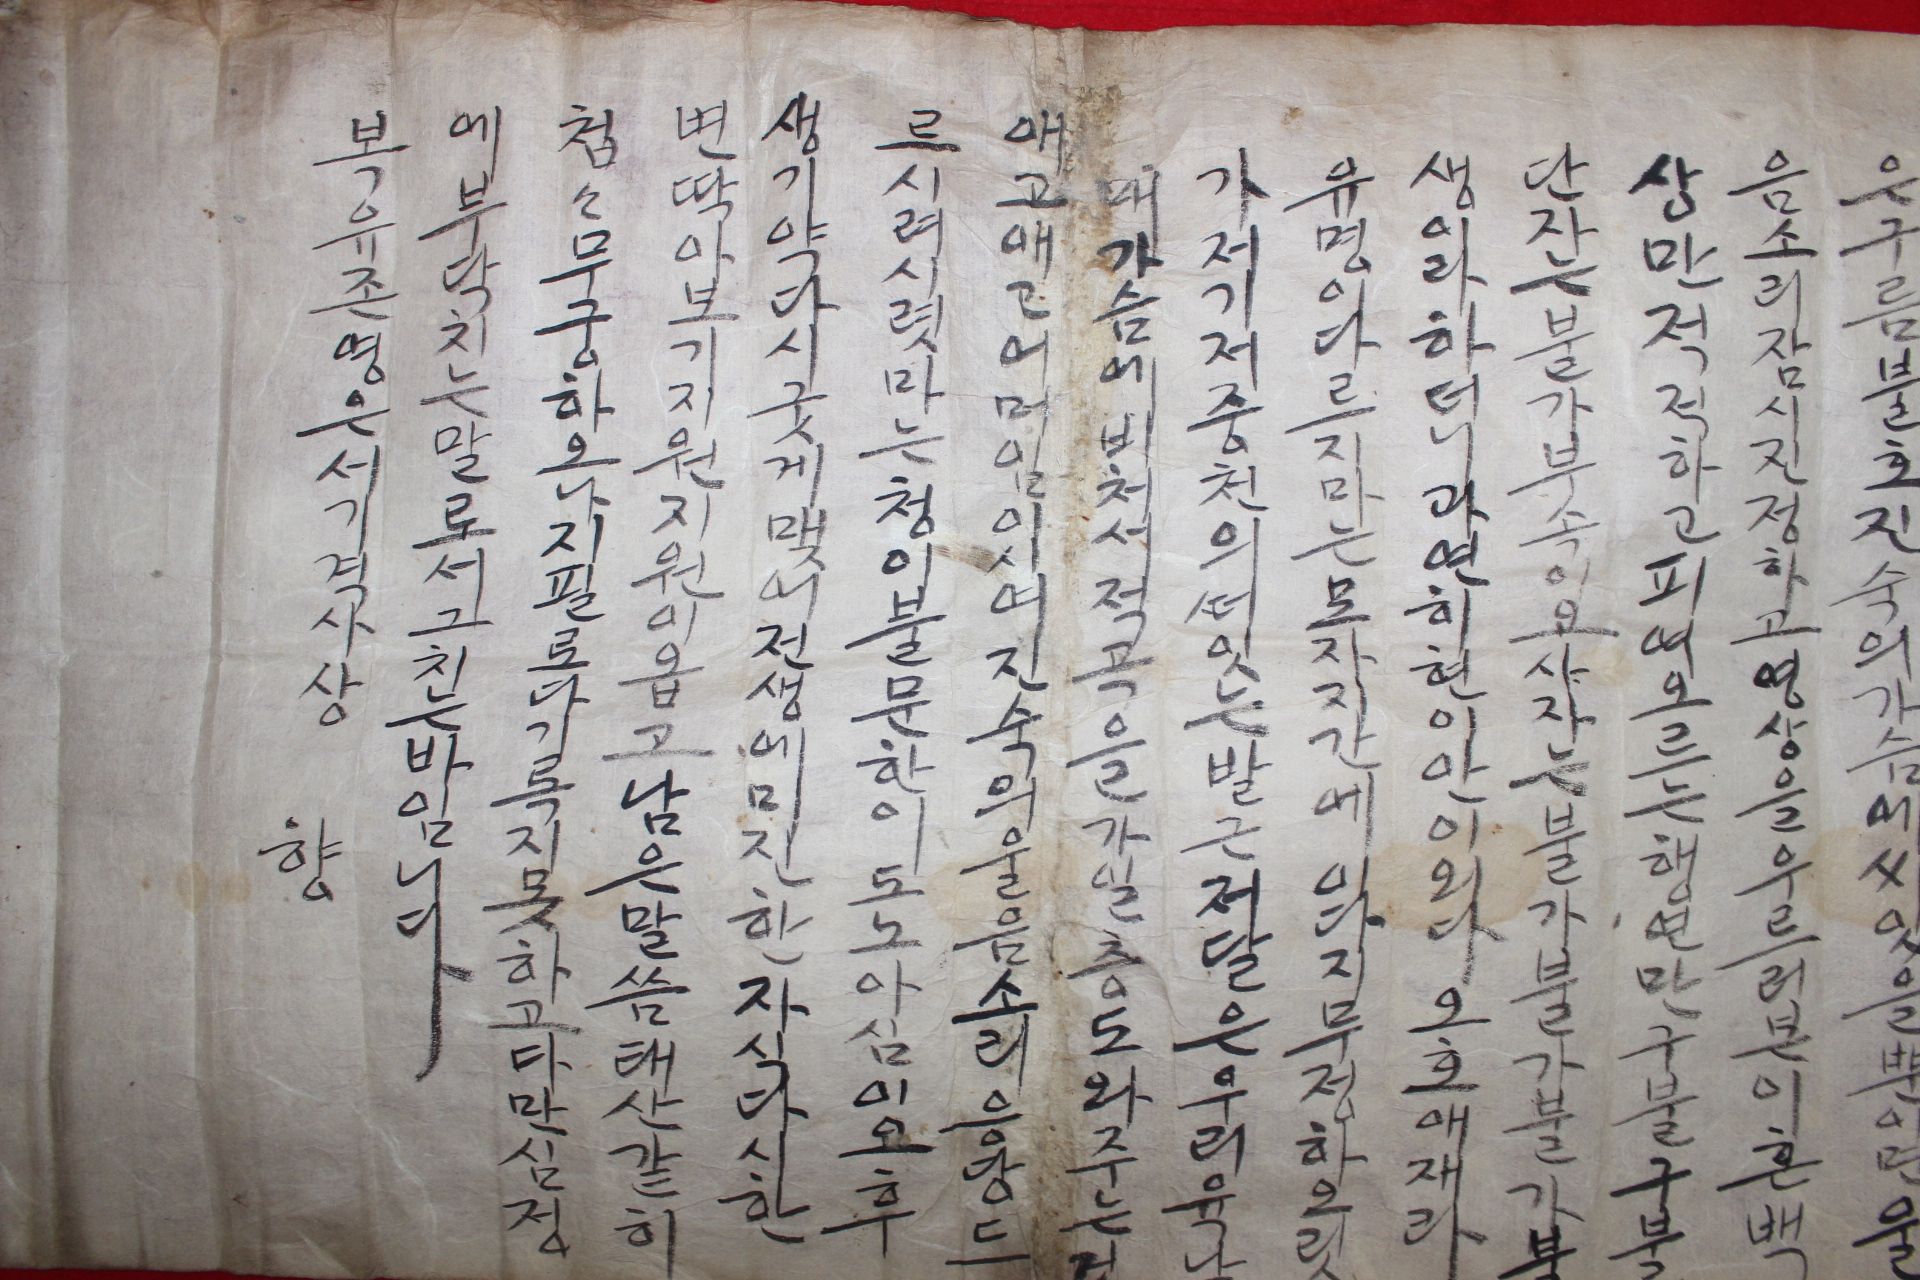 은구름불호진숙의가슴에싸잇을뿐이란울
음소리잠시진정하고영상을우르러본이혼백
상만적적하고피여오르는행연만구불구불
단자는불가부속이요사자는불가불가불가불
생이라하더니과연히헌이안이외다오호애재라
유명이다르지마는모자자간에이다지무정하오릿
가저기저중천의떠잇는발근저달은우리육남
매가슴에비처서적곡을가일층도와주는
애고애고어머임이시여진숙의울음소리응당드
르시려시렷마는청이불문한이도노아심이오후
생기약다시굿게맺어전생에미진한자식다시한
변딱아보기지원지원이옵고남은말씀태산같히
첩〻무궁하오나지필로다기록지못하고다만심정
에부닥치는말로서그치는바임니다
복유존영은서기격사상
향